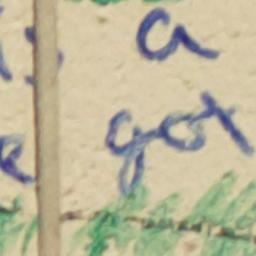 a
got